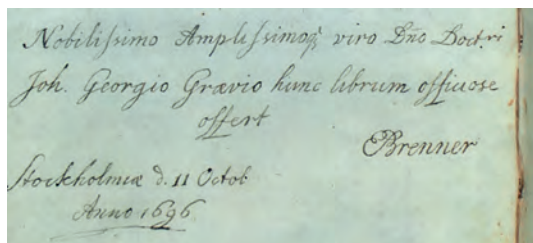 Nobilissimo Amplissimoq; viro Dno Doct:ri
Joh. Georgio Grævio hunc librum officiose
offert
Brenner
Stockholmiæ d. 11 Octob
Anno 1696